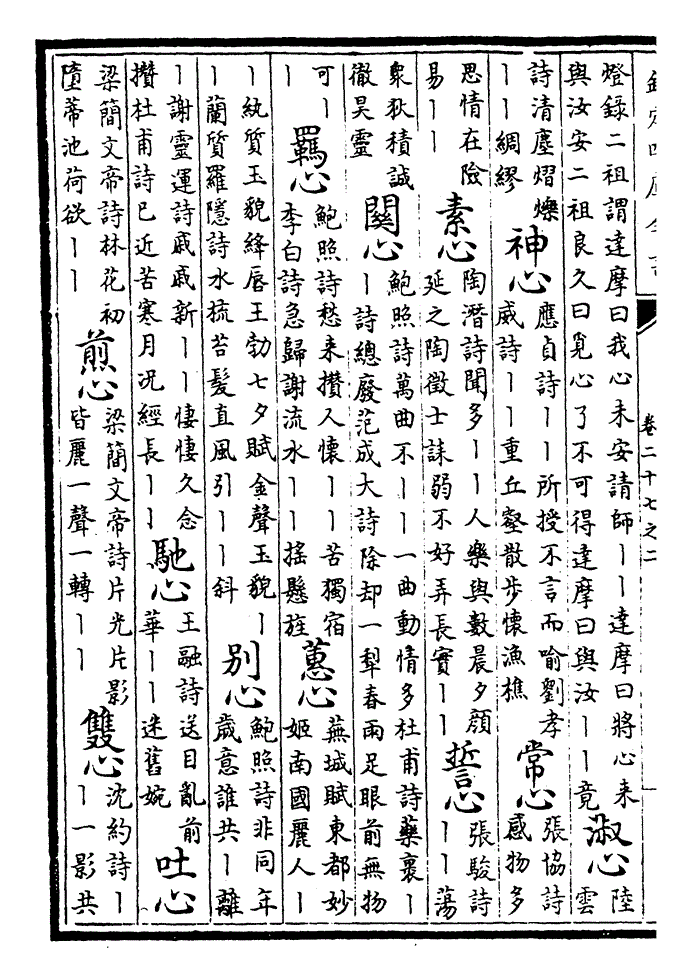 欽定四庫全書
卷二十七之二
燈錄二祖謂達摩曰我心未安請師丨丨達摩曰將心来
與汝安二祖良久曰覓心了不可得達摩曰與汝丨丨竟
淑心
陸
雲
詩清塵熠爍
丨丨綢繆
神心
應貞詩丨丨所授不言而喻劉孝
威詩丨丨重丘壑散步懷漁樵
常心
張協詩
感物多
思情在險
易丨丨
素心
陶潛詩聞多丨丨人樂與數晨夕顔
延之陶徵士誄弱不好弄長實丨丨
誓心
張駿詩
丨丨蕩
衆狄積誠
徹昊靈
關心
鮑照詩萬曲不丨丨一曲動情多杜甫詩藥裹丨
丨詩總廢范成大詩除却一犁春雨足眼前無物
可丨
丨
羈心
鮑照詩愁来攢人懷丨丨苦獨宿
李白詩急歸謝流水丨丨摇懸旌
蕙心
蕪城賦東都妙
姬南國麗人丨
丨紈質玉貌絳唇王勃七夕賦金聲玉貌丨
丨蘭質羅隱詩水梳苔髮直風引丨丨斜
别心
鮑照詩非同年
歲意誰共丨離
丨謝靈運詩戚戚新丨丨悽悽久念
攢杜甫詩巳近苦寒月况經長丨丨
馳心
王融詩送目亂前
華丨丨迷舊婉
吐心
梁簡文帝詩林花初
墮蒂池荷欲丨丨
煎心
梁簡文帝詩片光片影
皆麗一聲一轉丨丨
雙心
沈約詩丨
丨一影共